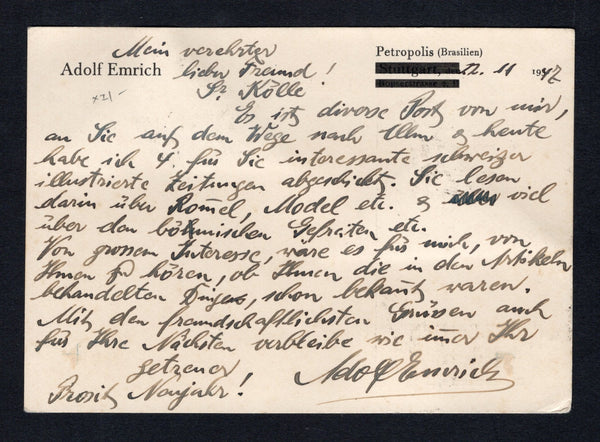 Mein verehrter
Petropolis (Brasilien)
Adolf Emrich lieber Freund!
Stuttgart, den 12. 11 1947
Sr Kölle
Es ist diverse Post von mir,
an Sie auf dem Wege nach Ulm & heute
habe ich 4 für Sie interessante schweizer
illustrierte Zeitungen abgeschickt. Sie lesen
darin über Rommel, Model etc. & viel
über den böhmischen Gefreiten etc.
Von grossem Interesse, wäre es für mich, von
Ihnen zu hören, ob Ihnen die in den Artikeln
behandelten Dinge, schon bekannt waren.
Mit den freundschaftlichsten Grüssen auch
für Ihre Nächsten verbleibe wie immer Ihr
getreuer Adolf Emrich
Prosit Neujahr!